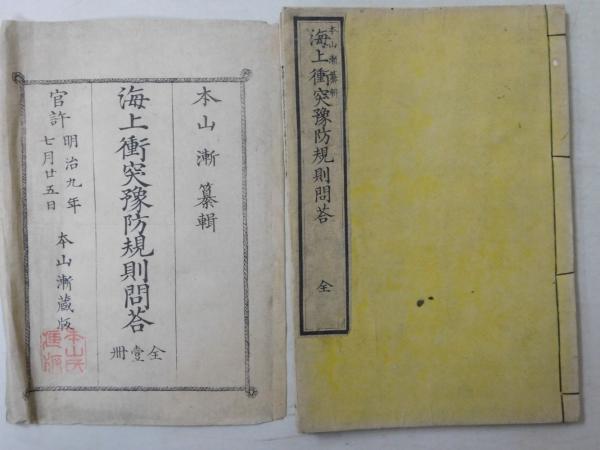 本山漸纂輯
海上衝突豫防規則問荅
全壹冊
官許明治九年
七月廿五日
本山漸蔵版
本山漸纂輯
海上衝突豫防規則問荅
全